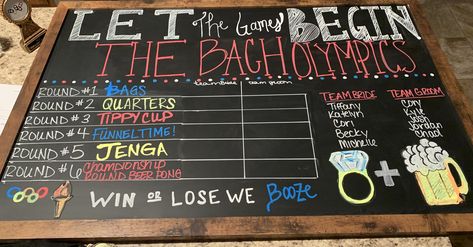 LET The Games BEGIN
THE BACHOLYMPICS
TEAM BRIDE TEAM GROOM
ROUND #1 BAGS
ROUND #2 QUARTERS
ROUND #3 TIPPY CUP
ROUND #4 FUNNEL TIME!
ROUND #5 JENGA
ROUND #6 CHAMPIONSHIP
ROUND BEER PONG
TEAM BRIDE
Tiffany
Katelyn
Cori
Becky
Michelle
TEAM GROOM
Cory
Kyle
Josh
Jordan
Chad
+
WIN OR LOSE WE BOOZE